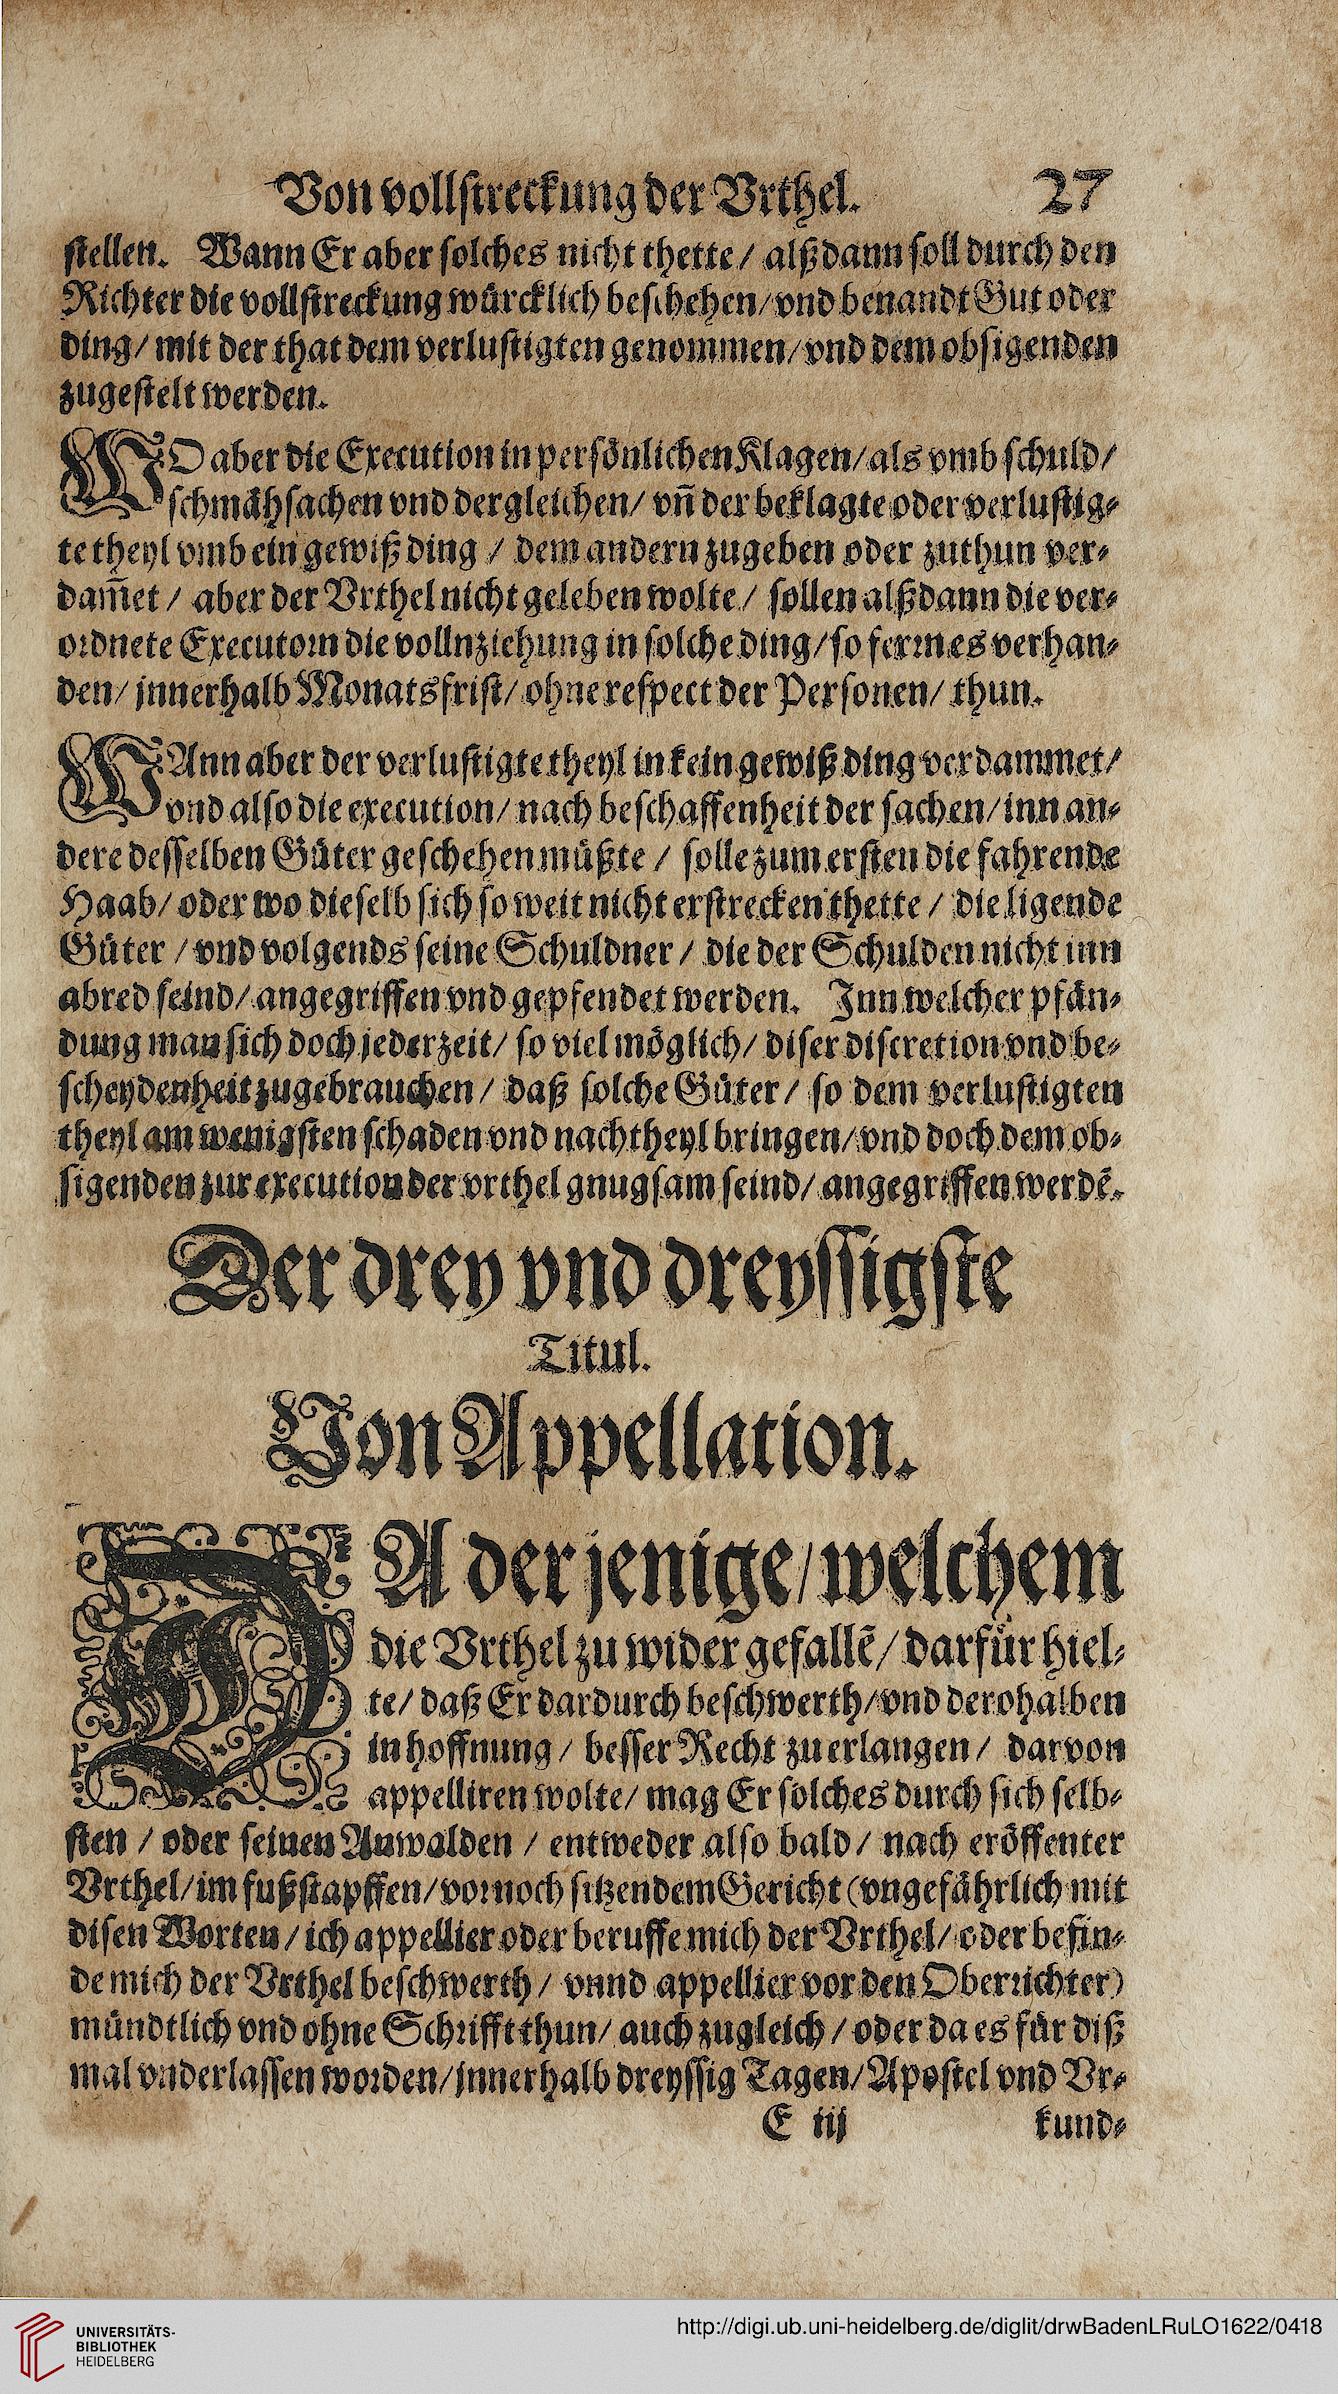 Von vollstreckung der Vrthel. 27
stellen. Wann Er aber solches nicht thette / alßdann soll durch den
Richter die vollstreckung würcklich beschehen / vnd benandt Gut oder
ding / mit der that dem verlustigten genommen / vnd dem obsigenden
zugestelt werden.
WO aber die Execution in persönlichen Klagen / als vmb schuld /
schmähsachen vnd dergleichen / vn̄ der beklagte oder verlustig-
te theyl vmb ein gewiß ding / dem andern zugeben oder zuthun ver-
dam̄et / aber der Vrthel nicht geleben wolte / sollen alßdann die ver-
ordnete Executorn die vollnziehung in solche ding / so ferrn es verhan-
den / jnnerhalb Monats frist / ohne respect der Personen / thun.
WAnn aber der verlustigte theyl in kein gewiß ding verdammet /
vnd also die execution / nach beschaffenheit der sachen / inn an-
dere desselben Güter geschehen müßte / solle zum ersten die fahrende
Haab / oder wo dieselb sich so weit nicht erstrecken thette / die ligende
Güter / vnd volgends seine Schuldner / die der Schulden nicht inn
abred seind / angegriffen vnd gepfendet werden. Inn welcher pfän-
dung man sich doch jederzeit / so viel möglich / diser discretion vnd be-
scheydenheit zugebrauchen / daß solche Güter / so dem verlustigten
theyl am wenigsten schaden vnd nachtheyl bringen / vnd doch dem ob-
sigenden zur execution der vrthel gnugsam seind / angegriffen werdē.
Der drey vnd dreyssigste
Titul.
Von Appellation.
DA der jenige / welchem
die Vrthel zu wider gefallē / darfür hiel-
te / daß Er dardurch beschwerth / vnd derohalben
in hoffnung / besser Recht zu erlangen / darvon
appelliren wolte / mag Er solches durch sich selb-
sten / oder seinen Anwalden / entweder also bald / nach eröffenter
Vrthel / im fußstapffen / vor noch sitzendem Gericht (vngefährlich mit
disen Worten / ich appellier oder beruffe mich der Vrthel / oder befin-
de mich der Vrthel beschwerth / vnnd appellier vor den Oberrichter)
mündtlich vnd ohne Schrifft thun / auch zugleich / oder da es für diß
mal vnderlassen worden / jnnerhalb dreyssig Tagen / Apostel vnd Vr-
E iij kund-
UNIVERSITÄTS-
BIBLIOTHEK
HEIDELBERG
http://digi.ub.uni-heidelberg.de/diglit/drwBadenLRuLO1622/0418